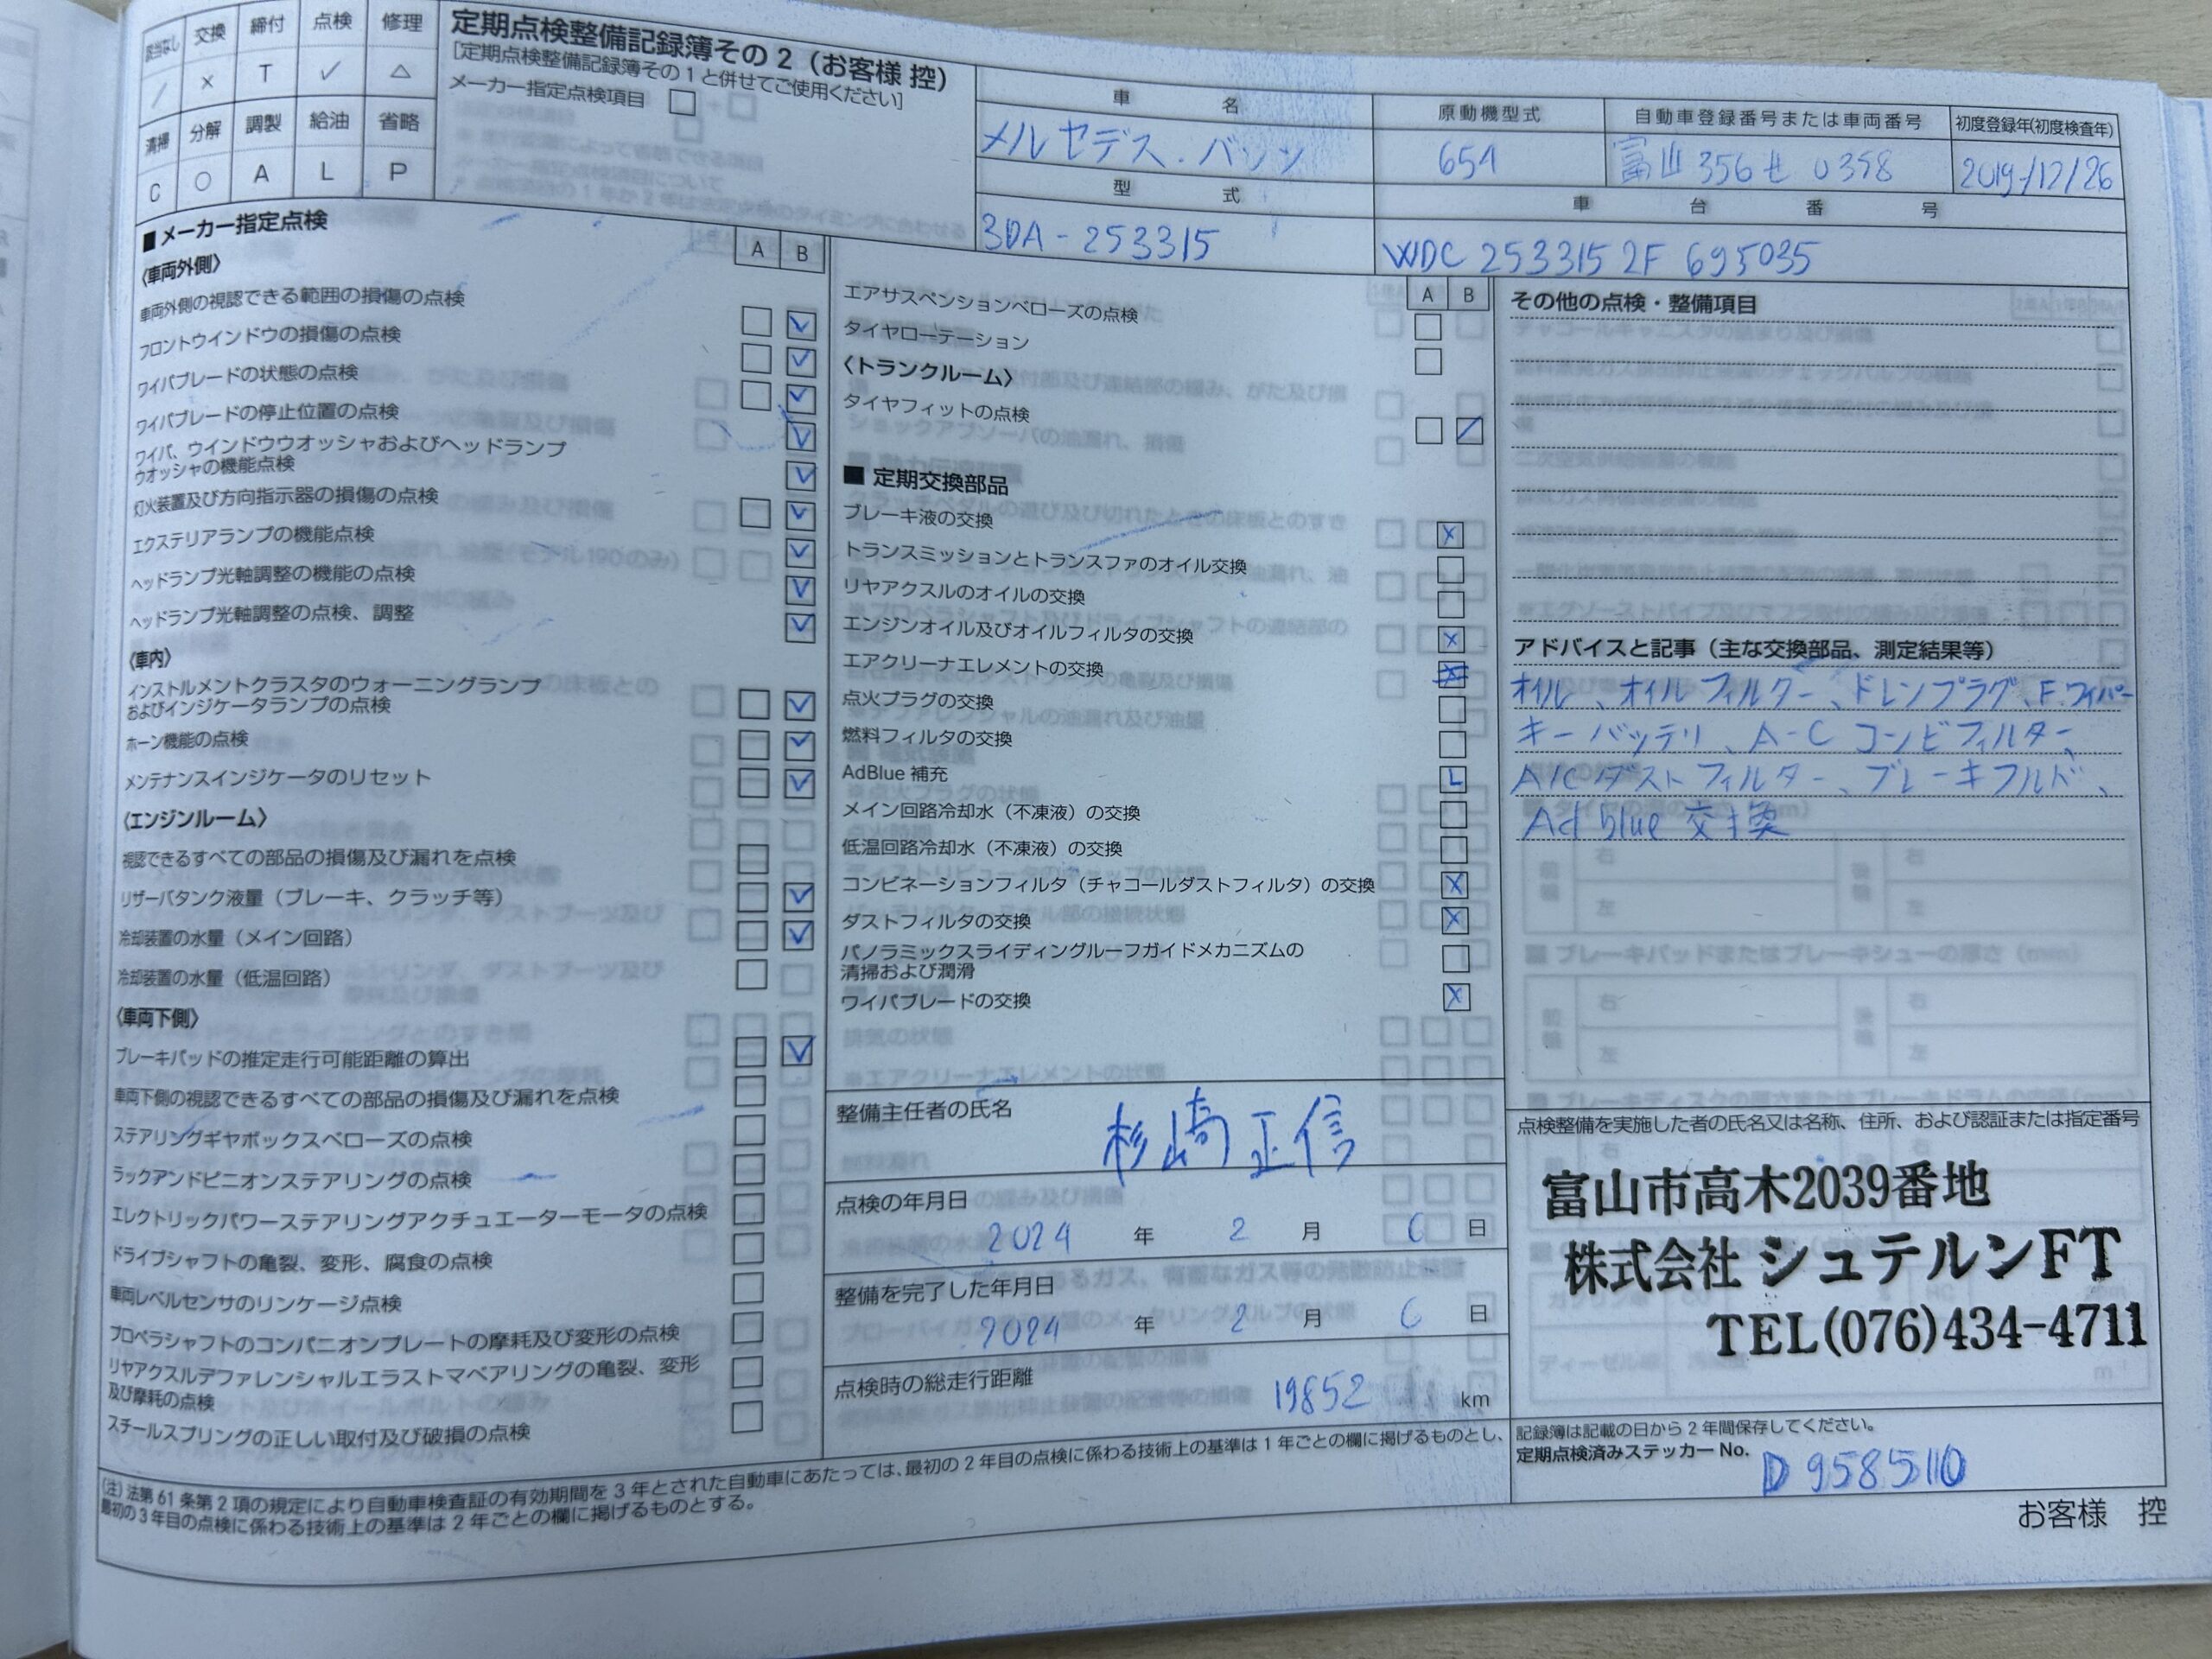 該当なし 交換 締付 点検 修理
/ × T ✓ △
清掃 分解 調製 給油 省略
C ○ A L P
定期点検整備記録簿その2（お客様 控）
［定期点検整備記録簿その1と併せてご使用ください］
メーカー指定点検項目 □
車 名
メルセデス・ベンツ
原動機型式
654
自動車登録番号または車両番号
富山 356 せ 0358
初度登録年(初度検査年)
2019/12/26
型 式
3DA-253315
車 台 番 号
WDC 253315 2F 695035
■メーカー指定点検
A B
〈車両外側〉
車両外側の視認できる範囲の損傷の点検
フロントウインドウの損傷の点検
ワイパブレードの状態の点検
ワイパブレードの停止位置の点検
ワイパ、ウインドウウオッシャおよびヘッドランプ
ウオッシャの機能点検
灯火装置及び方向指示器の損傷の点検
エクステリアランプの機能点検
ヘッドランプ光軸調整の機能の点検
ヘッドランプ光軸調整の点検、調整
〈車内〉
インストルメントクラスタのウォーニングランプ
およびインジケータランプの点検
ホーン機能の点検
メンテナンスインジケータのリセット
〈エンジンルーム〉
視認できるすべての部品の損傷及び漏れを点検
リザーバタンク液量（ブレーキ、クラッチ等）
冷却装置の水量（メイン回路）
冷却装置の水量（低温回路）
〈車両下側〉
ブレーキパッドの推定走行可能距離の算出
車両下側の視認できるすべての部品の損傷及び漏れを点検
ステアリングギヤボックスベローズの点検
ラックアンドピニオンステアリングの点検
エレクトリックパワーステアリングアクチュエーターモータの点検
ドライブシャフトの亀裂、変形、腐食の点検
車両レベルセンサのリンケージ点検
プロペラシャフトのコンパニオンプレートの摩耗及び変形の点検
リヤアクスルデファレンシャルエラストマベアリングの亀裂、変形
及び摩耗の点検
スチールスプリングの正しい取付及び破損の点検
A B
エアサスペンションベローズの点検
タイヤローテーション
〈トランクルーム〉
タイヤフィットの点検
■ 定期交換部品
ブレーキ液の交換 ×
トランスミッションとトランスファのオイル交換
リヤアクスルのオイルの交換
エンジンオイル及びオイルフィルタの交換 ×
エアクリーナエレメントの交換
点火プラグの交換
燃料フィルタの交換
AdBlue 補充 L
メイン回路冷却水（不凍液）の交換
低温回路冷却水（不凍液）の交換
コンビネーションフィルタ（チャコールダストフィルタ）の交換 ×
ダストフィルタの交換 ×
パノラミックスライディングルーフガイドメカニズムの
清掃および潤滑
ワイパブレードの交換 ×
整備主任者の氏名
杉崎 正信
点検の年月日
2024 年 2 月 6 日
整備を完了した年月日
2024 年 2 月 6 日
点検時の総走行距離
19852 km
その他の点検・整備項目
アドバイスと記事（主な交換部品、測定結果等）
オイル、オイルフィルター、ドレンプラグ、F.ワイパー
キーバッテリ、A-C コンビフィルター、
A/C ダストフィルター、ブレーキフルド、
Ad blue 交換
点検整備を実施した者の氏名又は名称、住所、および認証または指定番号
富山市高木2039番地
株式会社 シュテルンFT
TEL(076)434-4711
記録簿は記載の日から2年間保存してください。
定期点検済みステッカー No.
D 9585110
（注）法第61条第2項の規定により自動車検査証の有効期間を3年とされた自動車にあたっては、最初の2年目の点検に係わる技術上の基準は1年ごとの欄に掲げるものとし、
最初の3年目の点検に係わる技術上の基準は2年ごとの欄に掲げるものとする。
お客様 控